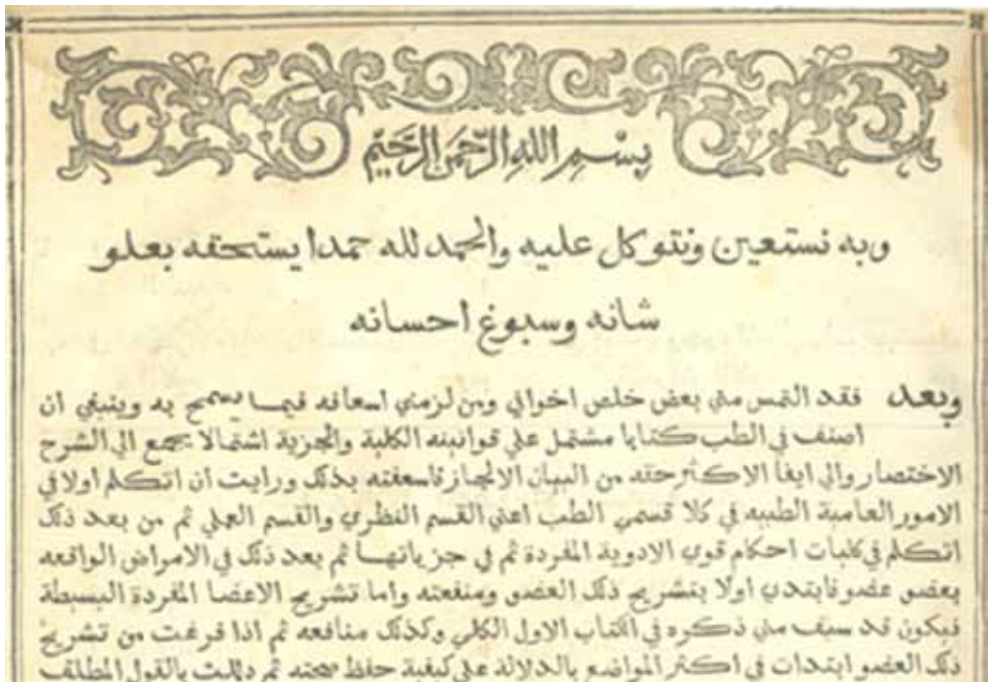 بِسْمِ اللهِ الرَّحْمَنِ الرَّحِيْمِ
وبه نستعين ونتوكل عليه والحمد لله حمدا يستحقه بعلو
شانه وسبوغ احسانه
وبعد فقد التمس مني بعض خلص اخواني ومن لزمني اسعافه فيما يسمح به وينبغي ان
اصنف في الطب كتابا مشتمل علي قوانينه الكلية والجزية اشتمالا يجمع الي الشرح
الاختصار والي ايفا الاكثر حقه من البيان الايجاز فاسعفته بذلك ورايت ان اتكلم اولا في
الامور العامية الطبيه في كلا قسمي الطب اعني القسم النظري والقسم العملي ثم من بعد ذلك
اتكلم في كليات احكام قوي الادوية المفردة ثم في جزياتها ثم بعد ذلك في الامراض الواقعه
بعضو عضو فابتدي اولا بتشريح ذلك العضو ومنفعته واما تشريح الاعضا المفردة البسيطة
فيكون قد سبف مني ذكره في الكتاب الاول الكلي وكذلك منافعه ثم اذا فرغت من تشريح
ذلك العضو ابتدات في اكثر المواضع بالدلالة علي كيفية حفظ صحته ثم دللت بالقول المطلف